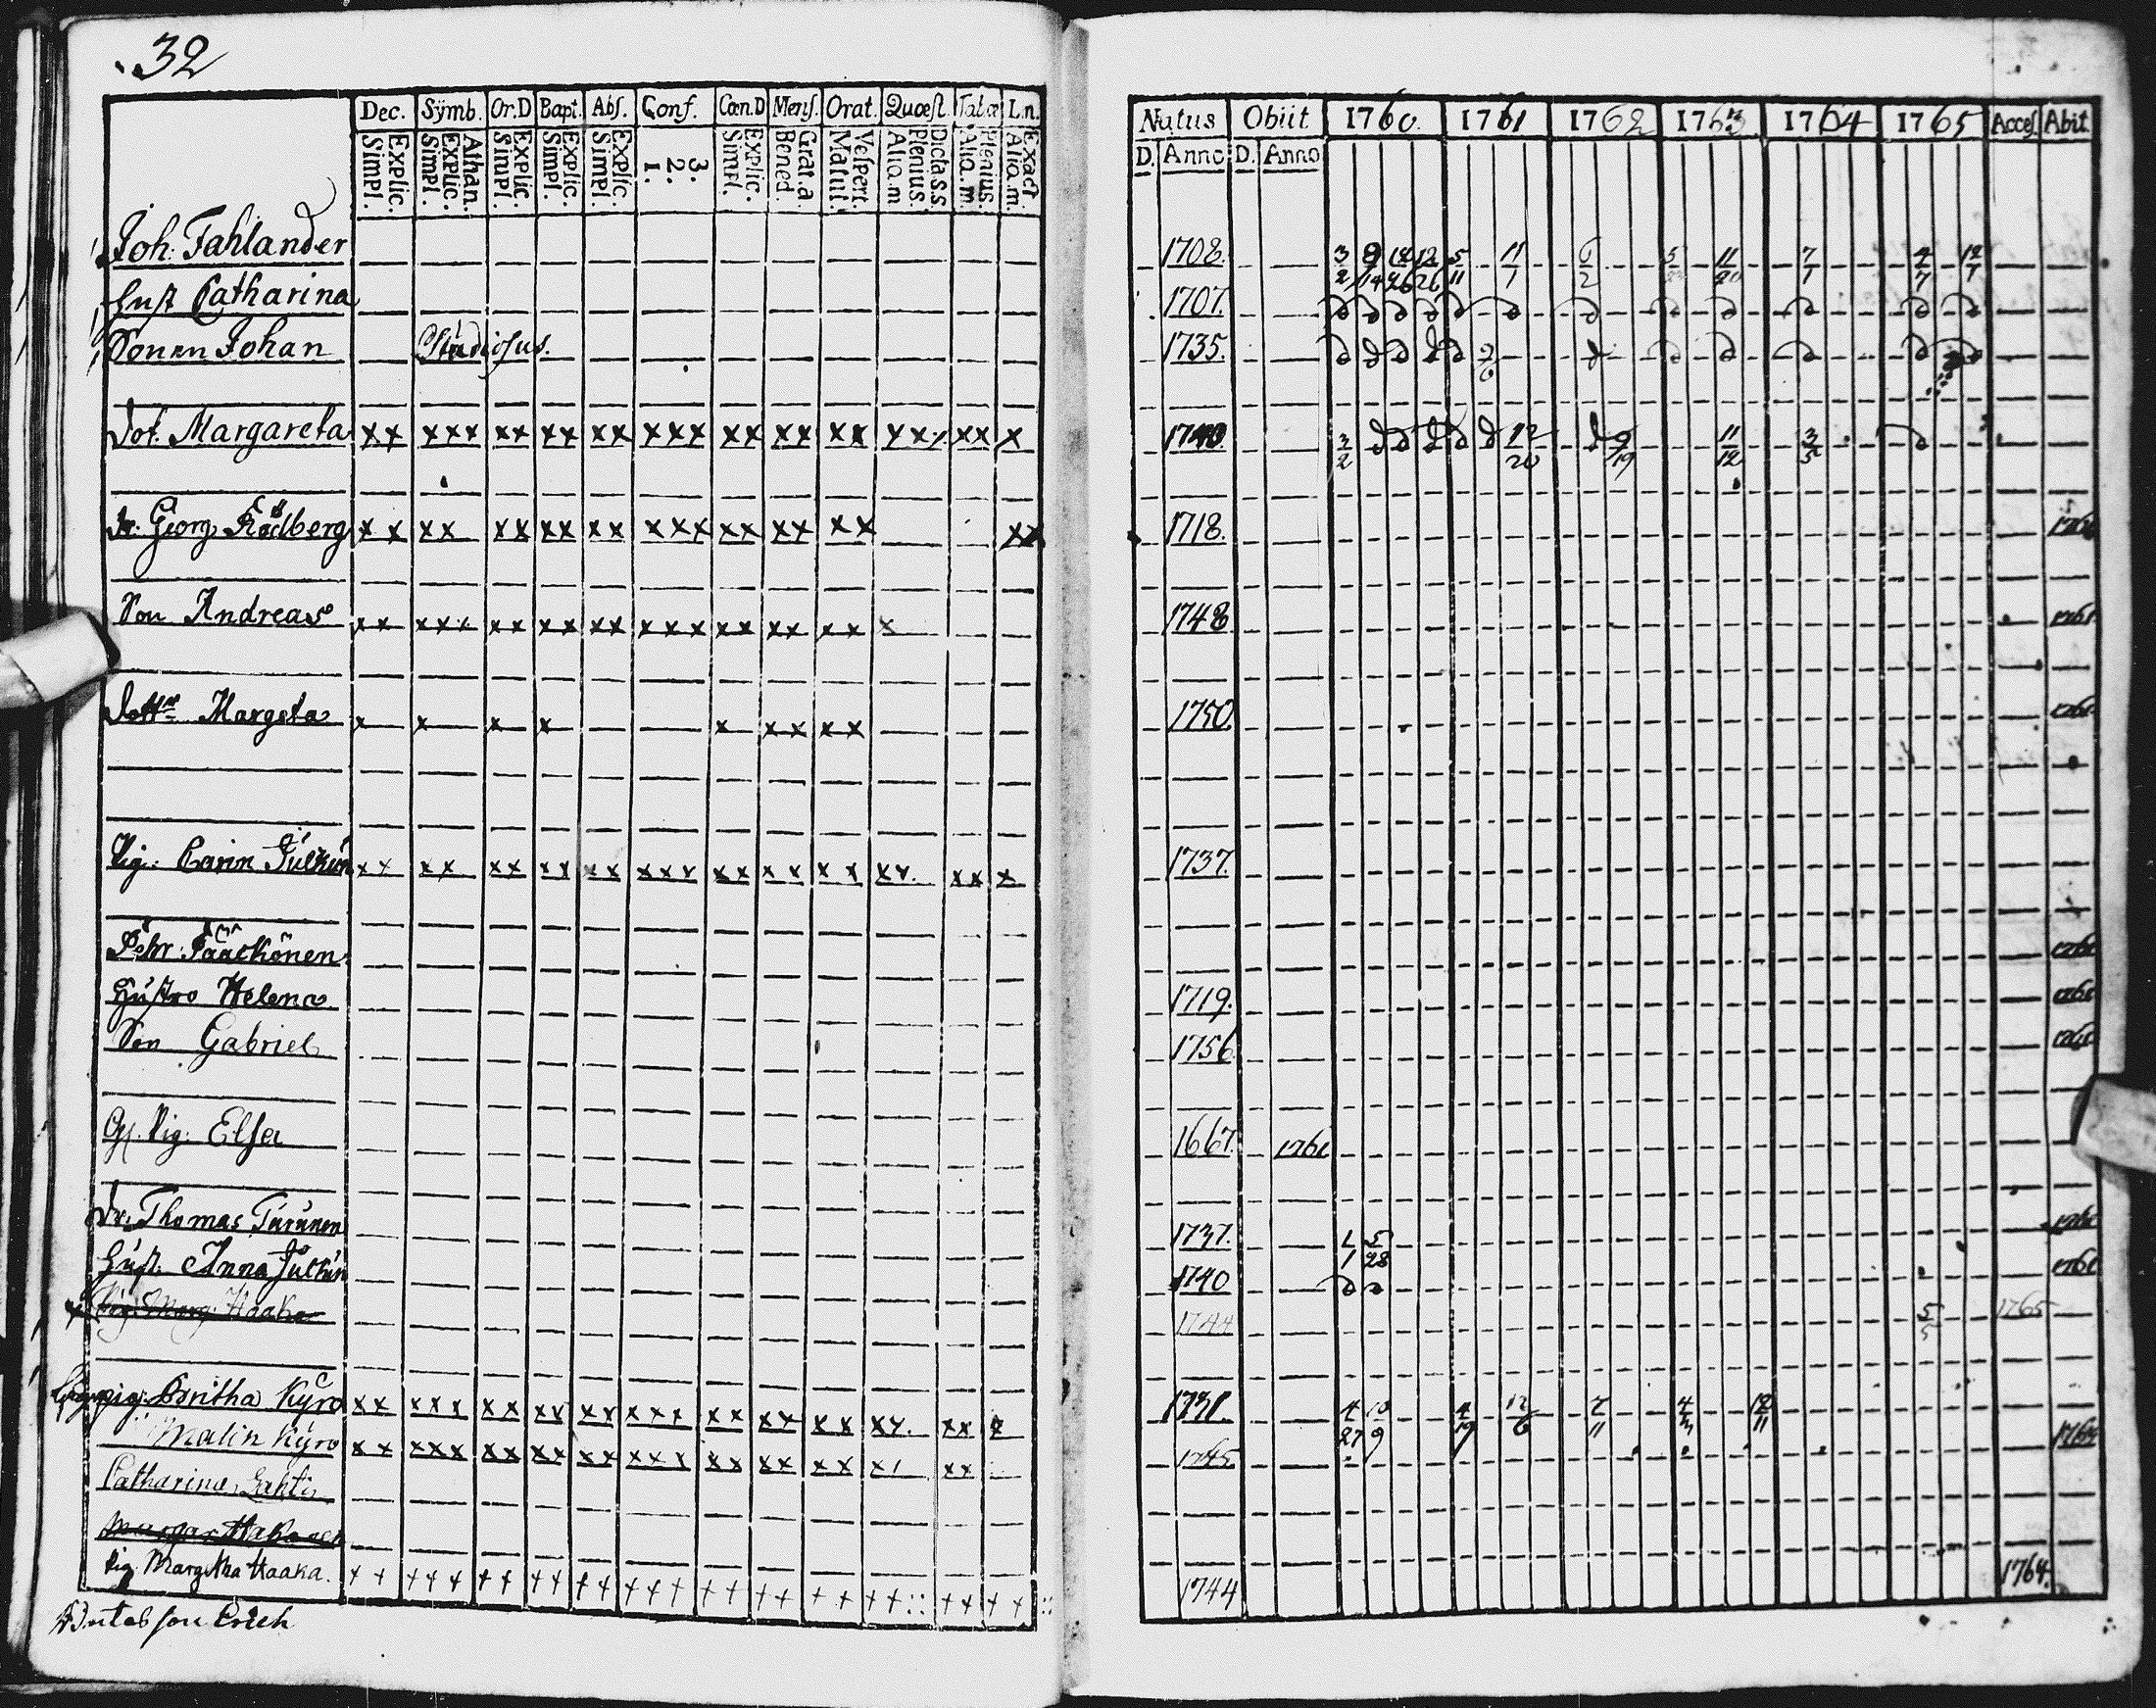 32
Dec. Sÿmb. Or.D Bapt. Abs. Conf. Cœn.D Mens. Orat. Quæst. Tabœ L.n. Natus Obiit 1760. 1761 1762 1763 1764 1765 Acces. Abit
Explic. Simpl. Athan. Explic. Simpl. Explic. Simpl. Explic. Simpl. Explic. Simpl. 3. 2. 1. Explic. Simpl. Grat.a. Bened. Vespert. Matut. Dicta s.s. Plenius. Aliq.m Plenius. Aliq.m. Exact Aliq.m. D. Anno D. Anno
Joh: Fahlander 1708. 3/2 9/14 12/26 5/11 11/1 6/2 5 11/20 7/1 4/7 12/1
Hust Catharina 1707.
Sonen Johan Studiosus. 1735.
Dot. Margareta xx xxx xx xx xx xxx xx xx xx xx xx x 1740 3/2 12/20 9/19 11/12 3/5
Georg Rödberg xx xx xx xx xx xxx xx xx xx xx 1718. 1761
Son Andreas xx xxx xx xx xx xxx xx xx xx x 1748 1761
Margeta x x x x x xx xx 1750 1761
Pig: Carin xx xx xx xx xx xxx xx xx xx xx. xx x 1737.
Pehr: Pääckönen 1761
Hustro Helena 1719. 1761
Son Gabriel 1756. 1761
Pig: Elsa 1667. 1761
Dr. Thomas Turunen 1737. 1/1 5/28 1761
Hust. Anna 1740 1761
Pig. Marg: Haaka 1744 5/5 1765
pig. Britha Kÿrö xx xxx xx xx xx xxx xx xx xx xx. xx x 1731. 4/27 10/9 4/19 12/6 2/11 4/3 12/11
Malin Kÿrö xx xxx xx xx xx xxx xx xx xx x xx 1745 1764
Catharina Lahti
Margar
Pig. Margetha Haaka. ++ +++ ++ ++ ++ +++ ++ ++ ++ ++ :: ++ ++ :: 1744 1764.
son Erich